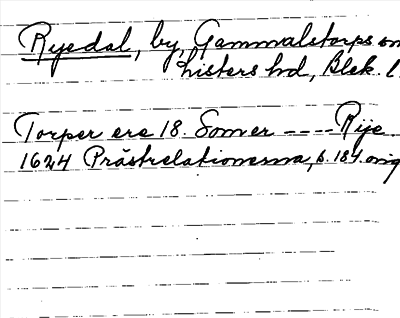 Ryedal, by, Gammalstorps sn
Listers hd, Blek. l.
Torper ere 18. Somer ---- Rije
1624 Prästrelationerna, s. 184 orig